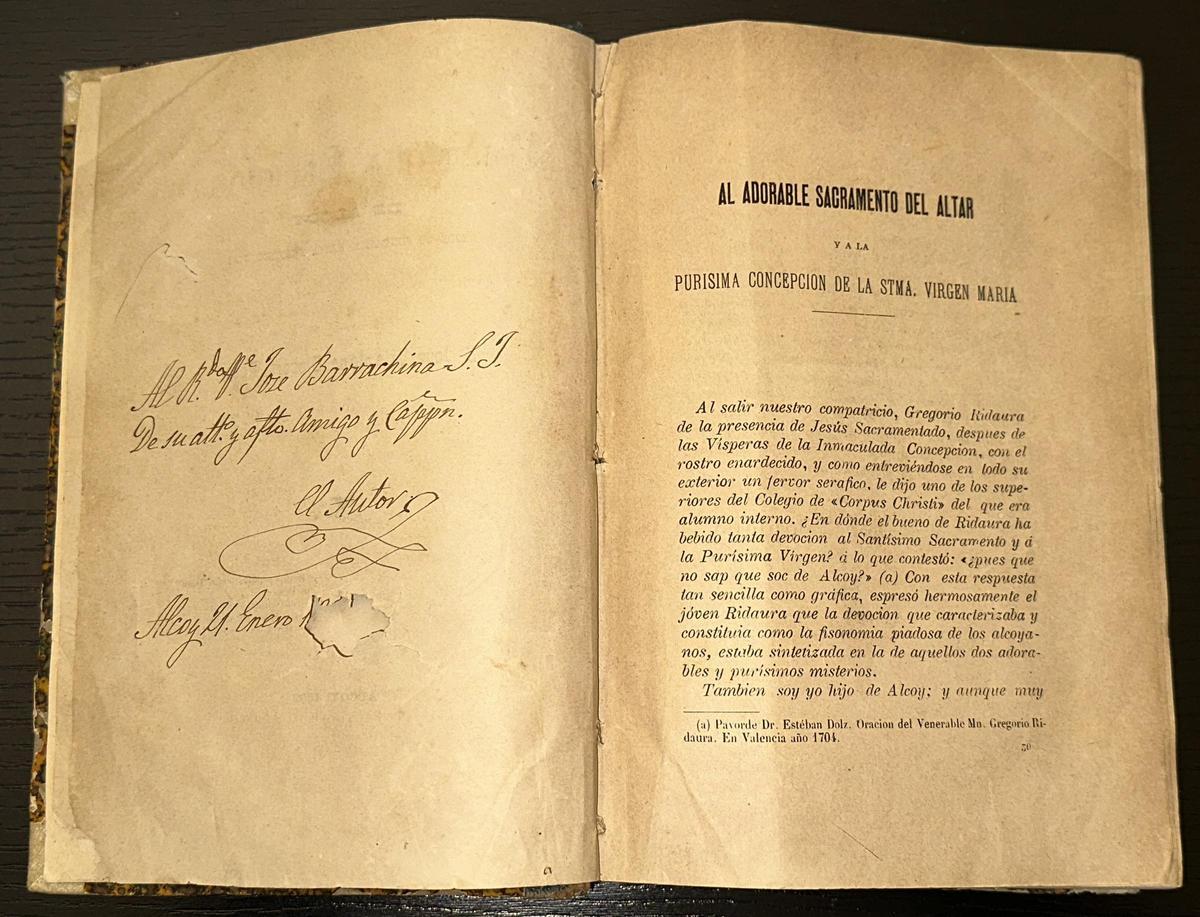 Al R.do P.e Jose Barrachina S. J.
De su att.o y afto. Amigo y Capp.n.
El Autor
Alcoy 21. Enero
AL ADORABLE SACRAMENTO DEL ALTAR
Y A LA
PURISIMA CONCEPCION DE LA STMA. VIRGEN MARIA
Al salir nuestro compatricio, Gregorio Ridaura
de la presencia de Jesús Sacramentado, despues de
las Vísperas de la Inmaculada Concepcion, con el
rostro enardecido, y como entreviéndose en todo su
exterior un fervor serafico, le dijo uno de los supe-
riores del Colegio de «Corpus Christi» del que era
alumno interno. ¿En dónde el bueno de Ridaura ha
bebido tanta devocion al Santísimo Sacramento y á
la Purísima Vírgen? á lo que contestó: «¿pues que
no sap que soc de Alcoy?» (a) Con esta respuesta
tan sencilla como gráfica, espresó hermosamente el
jóven Ridaura que la devocion que caracterizaba y
constituia como la fisonomia piadosa de los alcoya-
nos, estaba sintetizada en la de aquellos dos adora-
bles y purísimos misterios.
Tambien soy yo hijo de Alcoy; y aunque muy
(a) Pavorde Dr. Estéban Dolz. Oracion del Venerable Mn. Gregorio Ri-
daura. En Valencia año 1704.